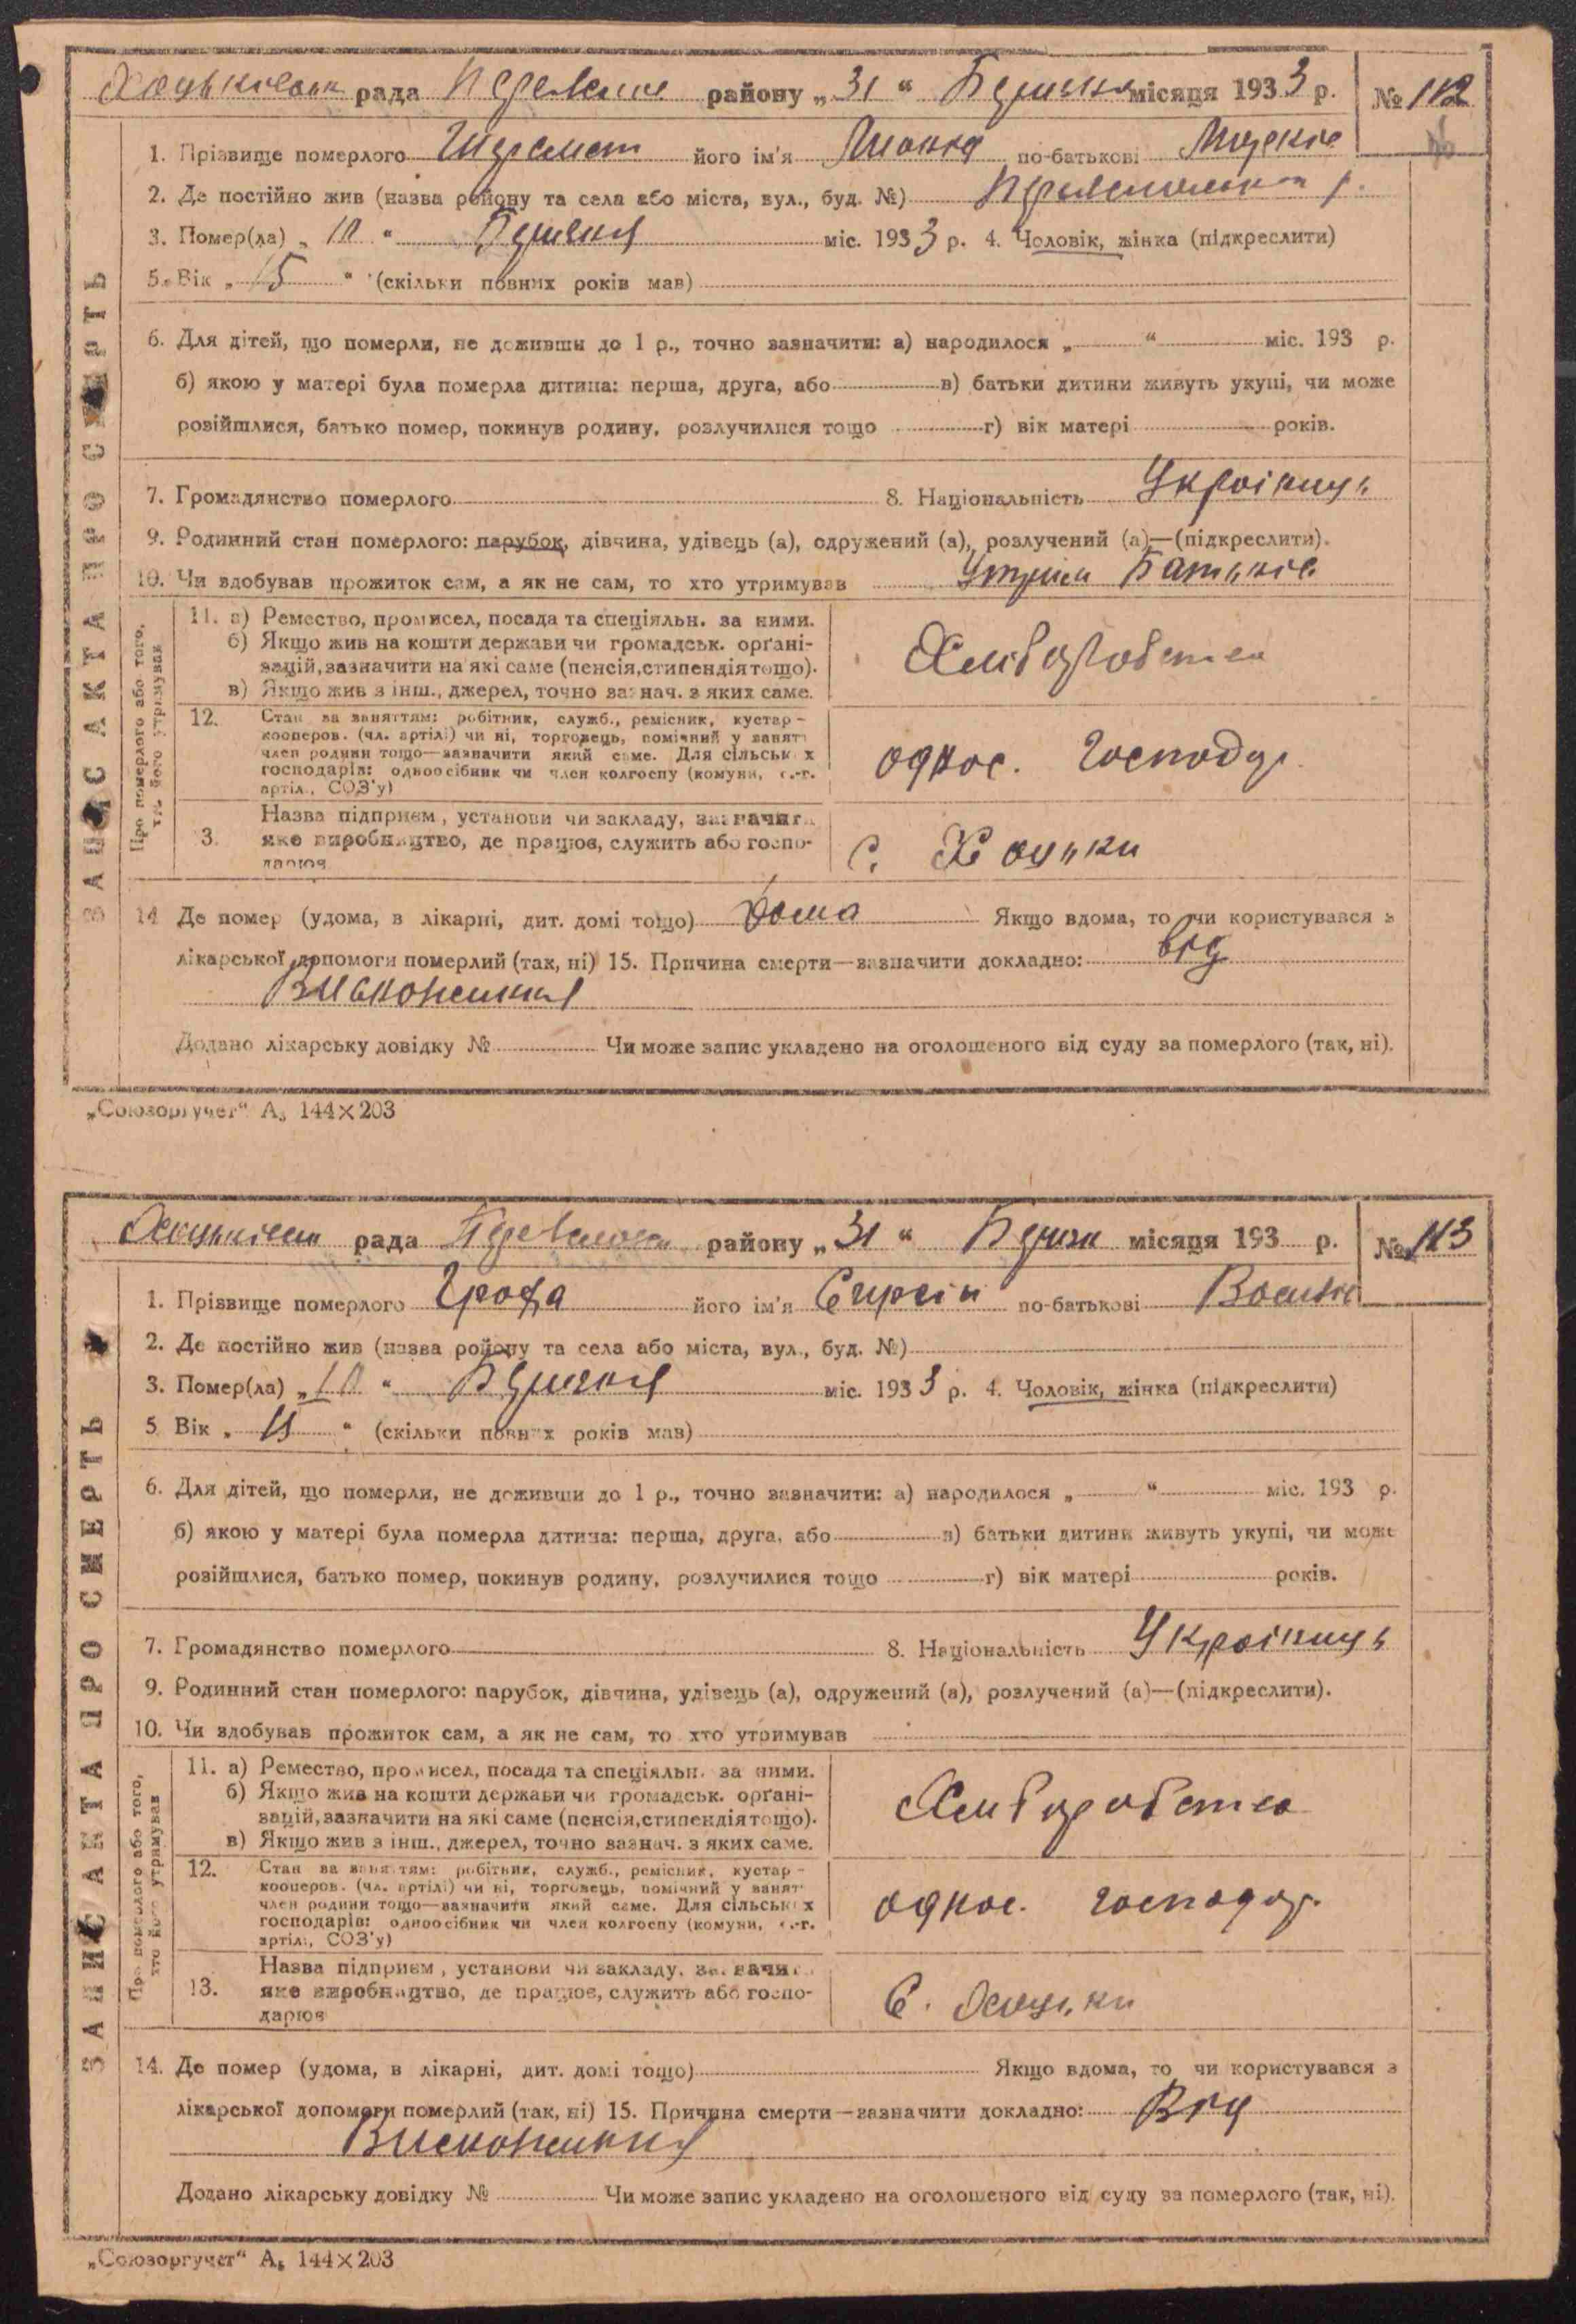 рада району „31“ місяця 1933 р. № 112
ЗАПИС АКТА ПРО СМЕРТЬ
1. Прізвище померлого його ім'я по-батькові
2. Де постійно жив (назва району та села або міста, вул., буд. №)
3. Помер(ла) „10“ Березня міс. 1933 р. 4. Чоловік, жінка (підкреслити)
5. Вік „15“ (скільки повних років мав)
6. Для дітей, що померли, не доживши до 1 р., точно зазначити: а) народилося „ “ міс. 193 р.
б) якою у матері була померла дитина: перша, друга, або в) батьки дитини живуть укупі, чи може
розійшлися, батько помер, покинув родину, розлучилися тощо г) вік матері років.
7. Громадянство померлого 8. Національність Українець
9. Родинний стан померлого: парубок, дівчина, удівець (а), одружений (а), розлучений (а)—(підкреслити).
10. Чи здобував прожиток сам, а як не сам, то хто утримував Утрим Батьків
Про померлого або того, хто його утримував
11. а) Ремество, промисел, посада та спеціяльн. за ними.
б) Якщо жив на кошти держави чи громадськ. орґані-
зацій, зазначити на які саме (пенсія, стипендія тощо).
в) Якщо жив з інш., джерел, точно зазнач. з яких саме.
Хліборобство
12. Стан за заняттям: робітник, служб., ремісник, кустар-
кооперов. (чл. артілі) чи ні, торговець, помічний у занятт
член родини тощо—зазначити який саме. Для сільських
господарів: одноосібник чи член колгоспу (комуни, с.-г.
артіл., СОЗ'у)
однос. господар.
13. Назва підприєм, установи чи закладу, зазначити
яке виробництво, де працює, служить або госпо-
дарює
с. Хоцьки
14 Де помер (удома, в лікарні, дит. домі тощо) Дома Якщо вдома, то чи користувався з
лікарської допомоги померлий (так, ні) 15. Причина смерти—зазначити докладно: від
Висноження
Додано лікарську довідку № Чи може запис укладено на оголошеного від суду за померлого (так, ні).
„Союзоргучет“ А₅ 144×203
рада району „31“ місяця 193 р. № 113
ЗАПИС АКТА ПРО СМЕРТЬ
1. Прізвище померлого його ім'я по-батькові
2. Де постійно жив (назва району та села або міста, вул., буд. №)
3. Помер(ла) „10“ Березня міс. 1933 р. 4. Чоловік, жінка (підкреслити)
5 Вік „ “ (скільки повних років мав)
6. Для дітей, що померли, не доживши до 1 р., точно зазначити: а) народилося „ “ міс. 193 р.
б) якою у матері була померла дитина: перша, друга, або в) батьки дитини живуть укупі, чи може
розійшлися, батько помер, покинув родину, розлучилися тощо г) вік матері років.
7. Громадянство померлого 8. Національність Українець
9. Родинний стан померлого: парубок, дівчина, удівець (а), одружений (а), розлучений (а)—(підкреслити).
10. Чи здобував прожиток сам, а як не сам, то хто утримував
Про померлого або того, хто його утримував
11. а) Ремество, промисел, посада та спеціяльн. за ними.
б) Якщо жив на кошти держави чи громадськ. орґані-
зацій, зазначити на які саме (пенсія, стипендія тощо).
в) Якщо жив з інш., джерел, точно зазнач. з яких саме.
Хліборобство
12. Стан за заняттям: робітник, служб., ремісник, кустар-
кооперов. (чл. артілі) чи ні, торговець, помічний у занятт
член родини тощо—зазначити який саме. Для сільських
господарів: одноосібник чи член колгоспу (комуни, с.-г.
артіл., СОЗ'у)
однос. господар.
13. Назва підприєм, установи чи закладу, зазначити
яке виробництво, де працює, служить або госпо-
дарює
С. Хоцьки
14. Де помер (удома, в лікарні, дит. домі тощо) Якщо вдома, то чи користувався з
лікарської допомоги померлий (так, ні) 15. Причина смерти—зазначити докладно: Від
Висноження
Додано лікарську довідку № Чи може запис укладено на оголошеного від суду за померлого (так, ні).
„Союзоргучет“ А₅ 144×203